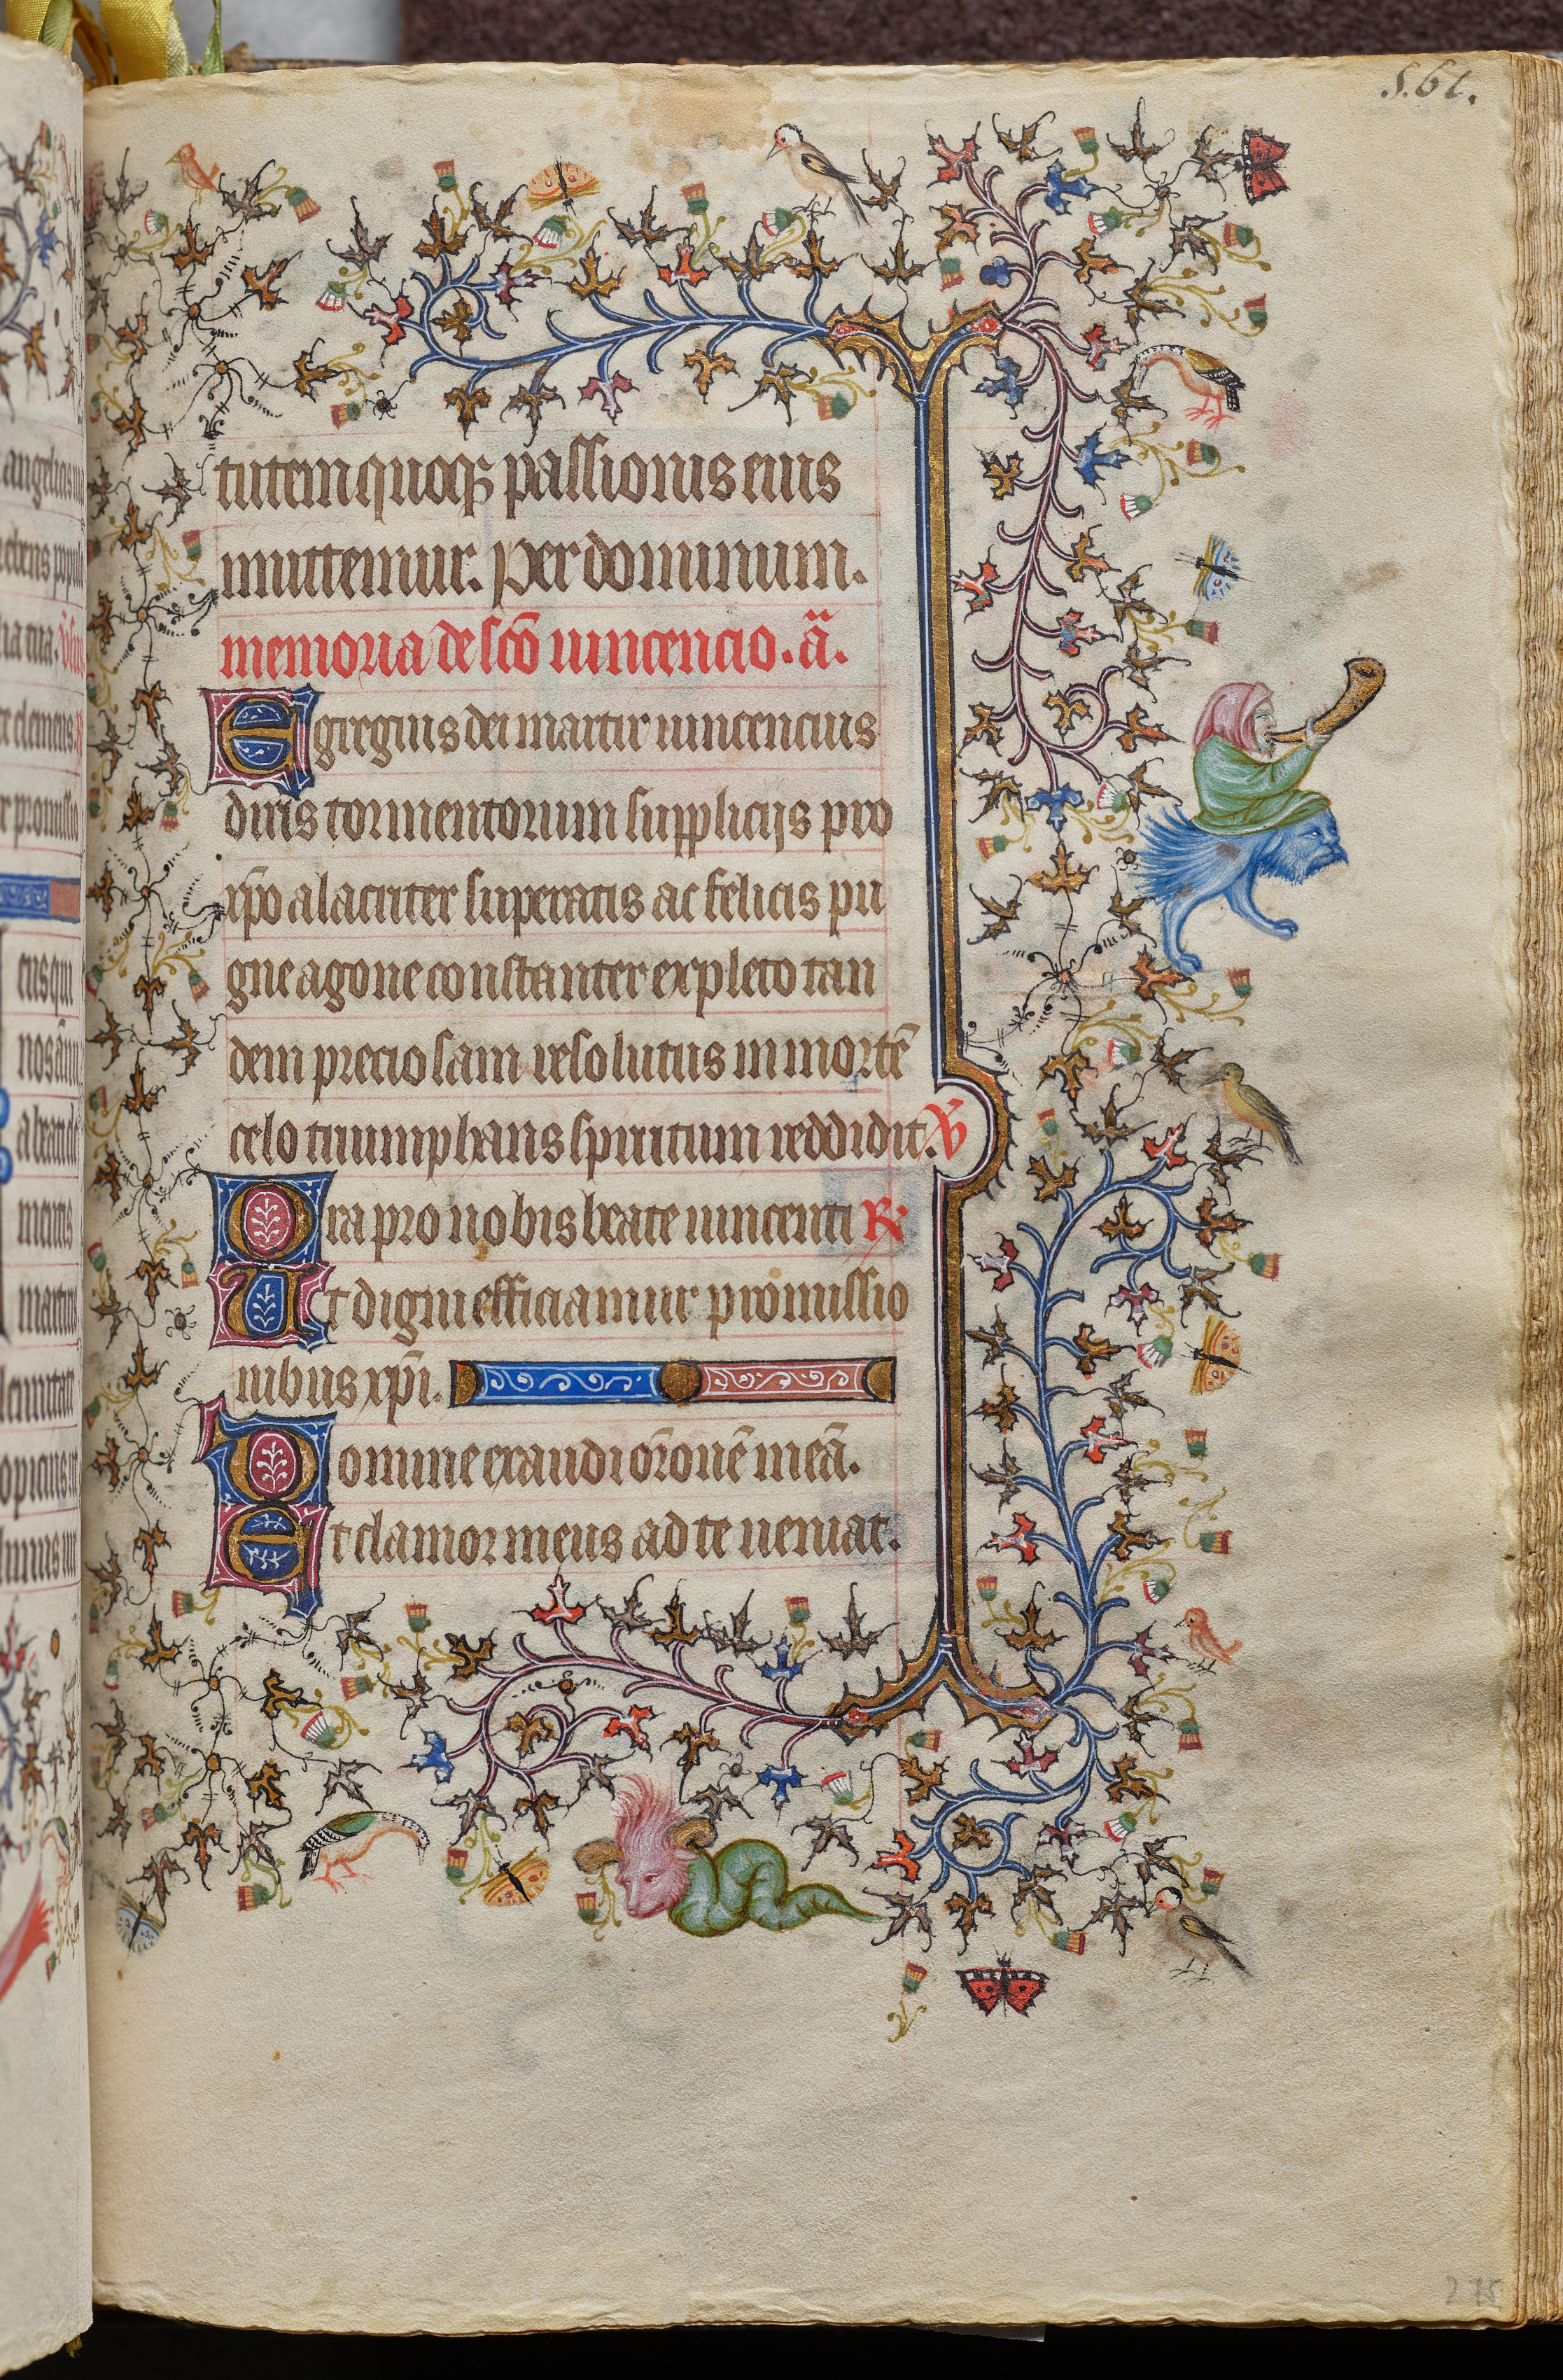 561.
tutem quoqꝫ passionis eius
muttemur. Per dominum.
memoria de sc̄o uincencio. a̅.
Egregius dei martir uincencius
diris tormentorum supplicijs pro
xp̄o alacriter superatis ac felicis pu
gne agone constanter expleto tan
dem preciosam resolutus in morte̅
celo triumphans spiritum reddidit. ℣
Ora pro nobis beate uincenti ℟
Ut digni efficiamur promissio
nibus xp̄i.
Domine exaudi or̅one̅ mea̅.
Et clamor meus ad te ueniat.
275